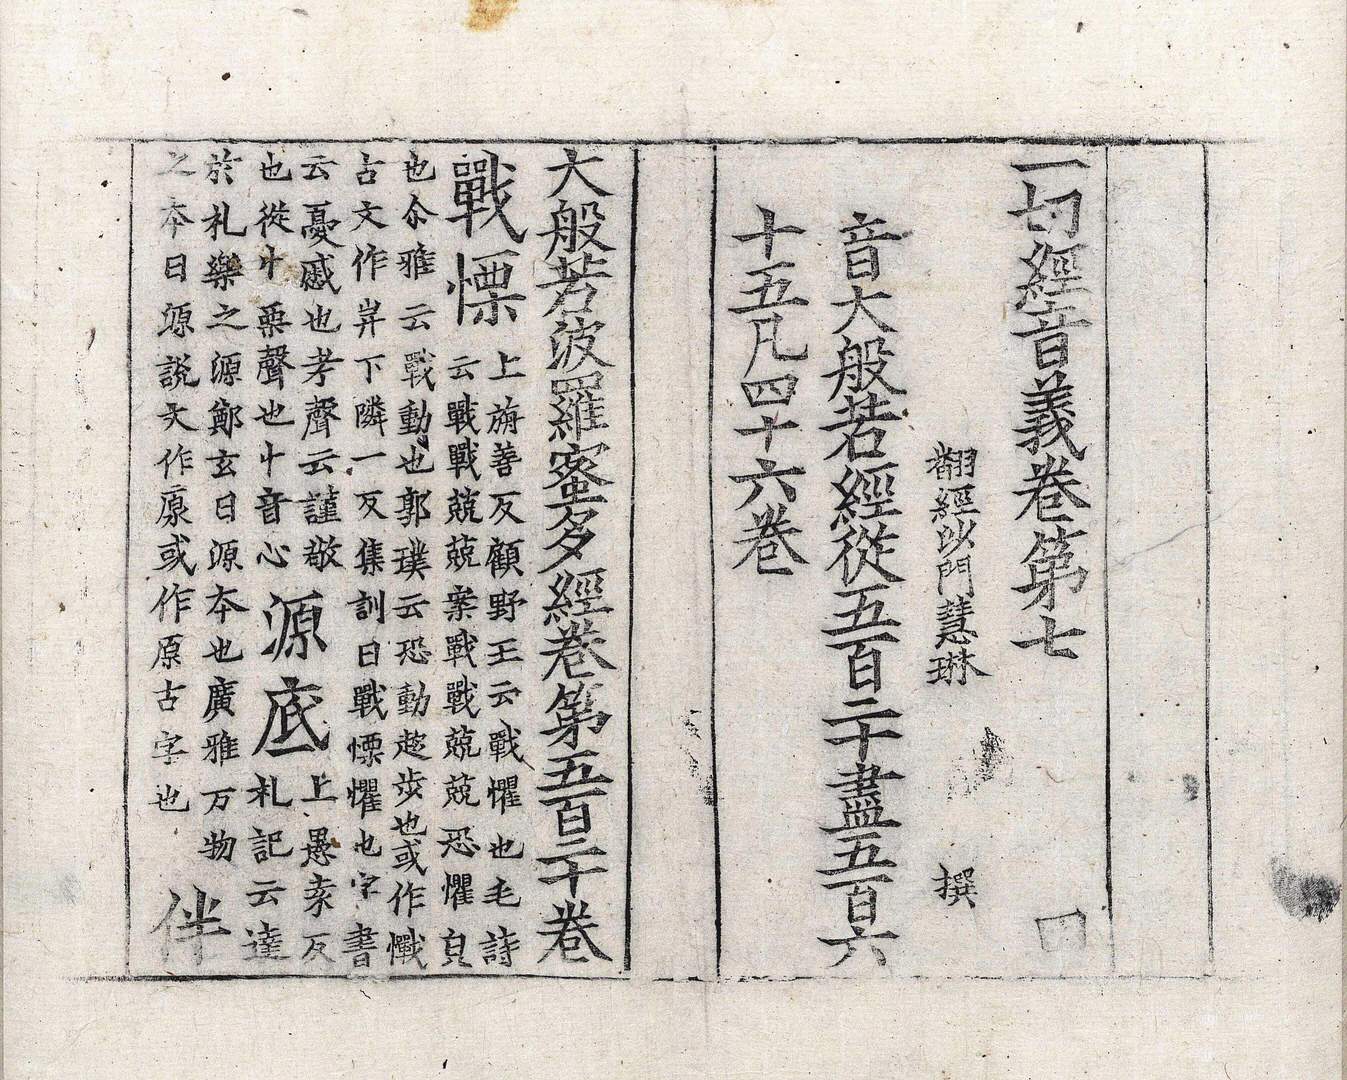 一切經音義卷第七
翻經沙門慧琳 撰
音大般若經從五百二十盡五百六
十五凡四十六卷
大般若波羅蜜多經卷第五百二十卷
戰慄
上旃善反顧野王云戰懼也毛詩
云戰戰兢兢案戰戰兢兢恐懼皃
也尒雅云戰動也郭璞云恐動趍步也或作㦧
古文作下隣一反集訓曰戰慄懼也字書
云憂慼也考聲云謹敬
也從忄栗聲也忄音心
源底
上愚袁反
札記云達
於札樂之源鄭玄曰源本也廣雅万物
之本曰源說文作厡或作原古字也
伴